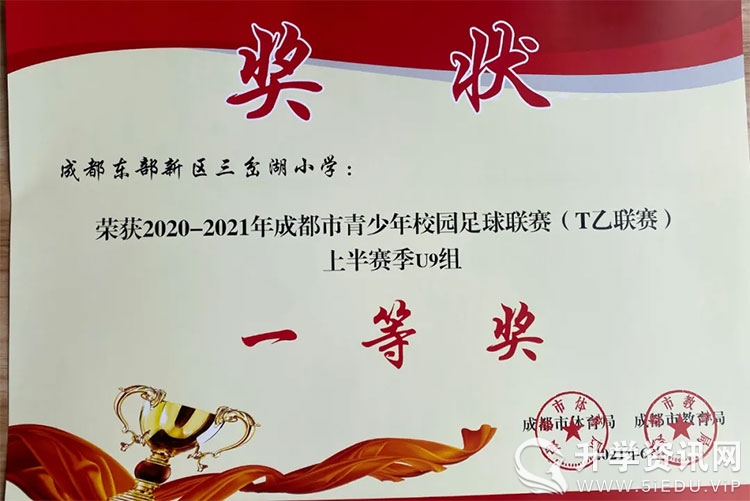 奖 状
成都东部新区三岔湖小学：
荣获2020-2021年成都市青少年校园足球联赛（T乙联赛）
上半赛季U9组
一 等 奖
成都市体育局 成都市教育局
升学资讯网
www.5iEDU.VIP